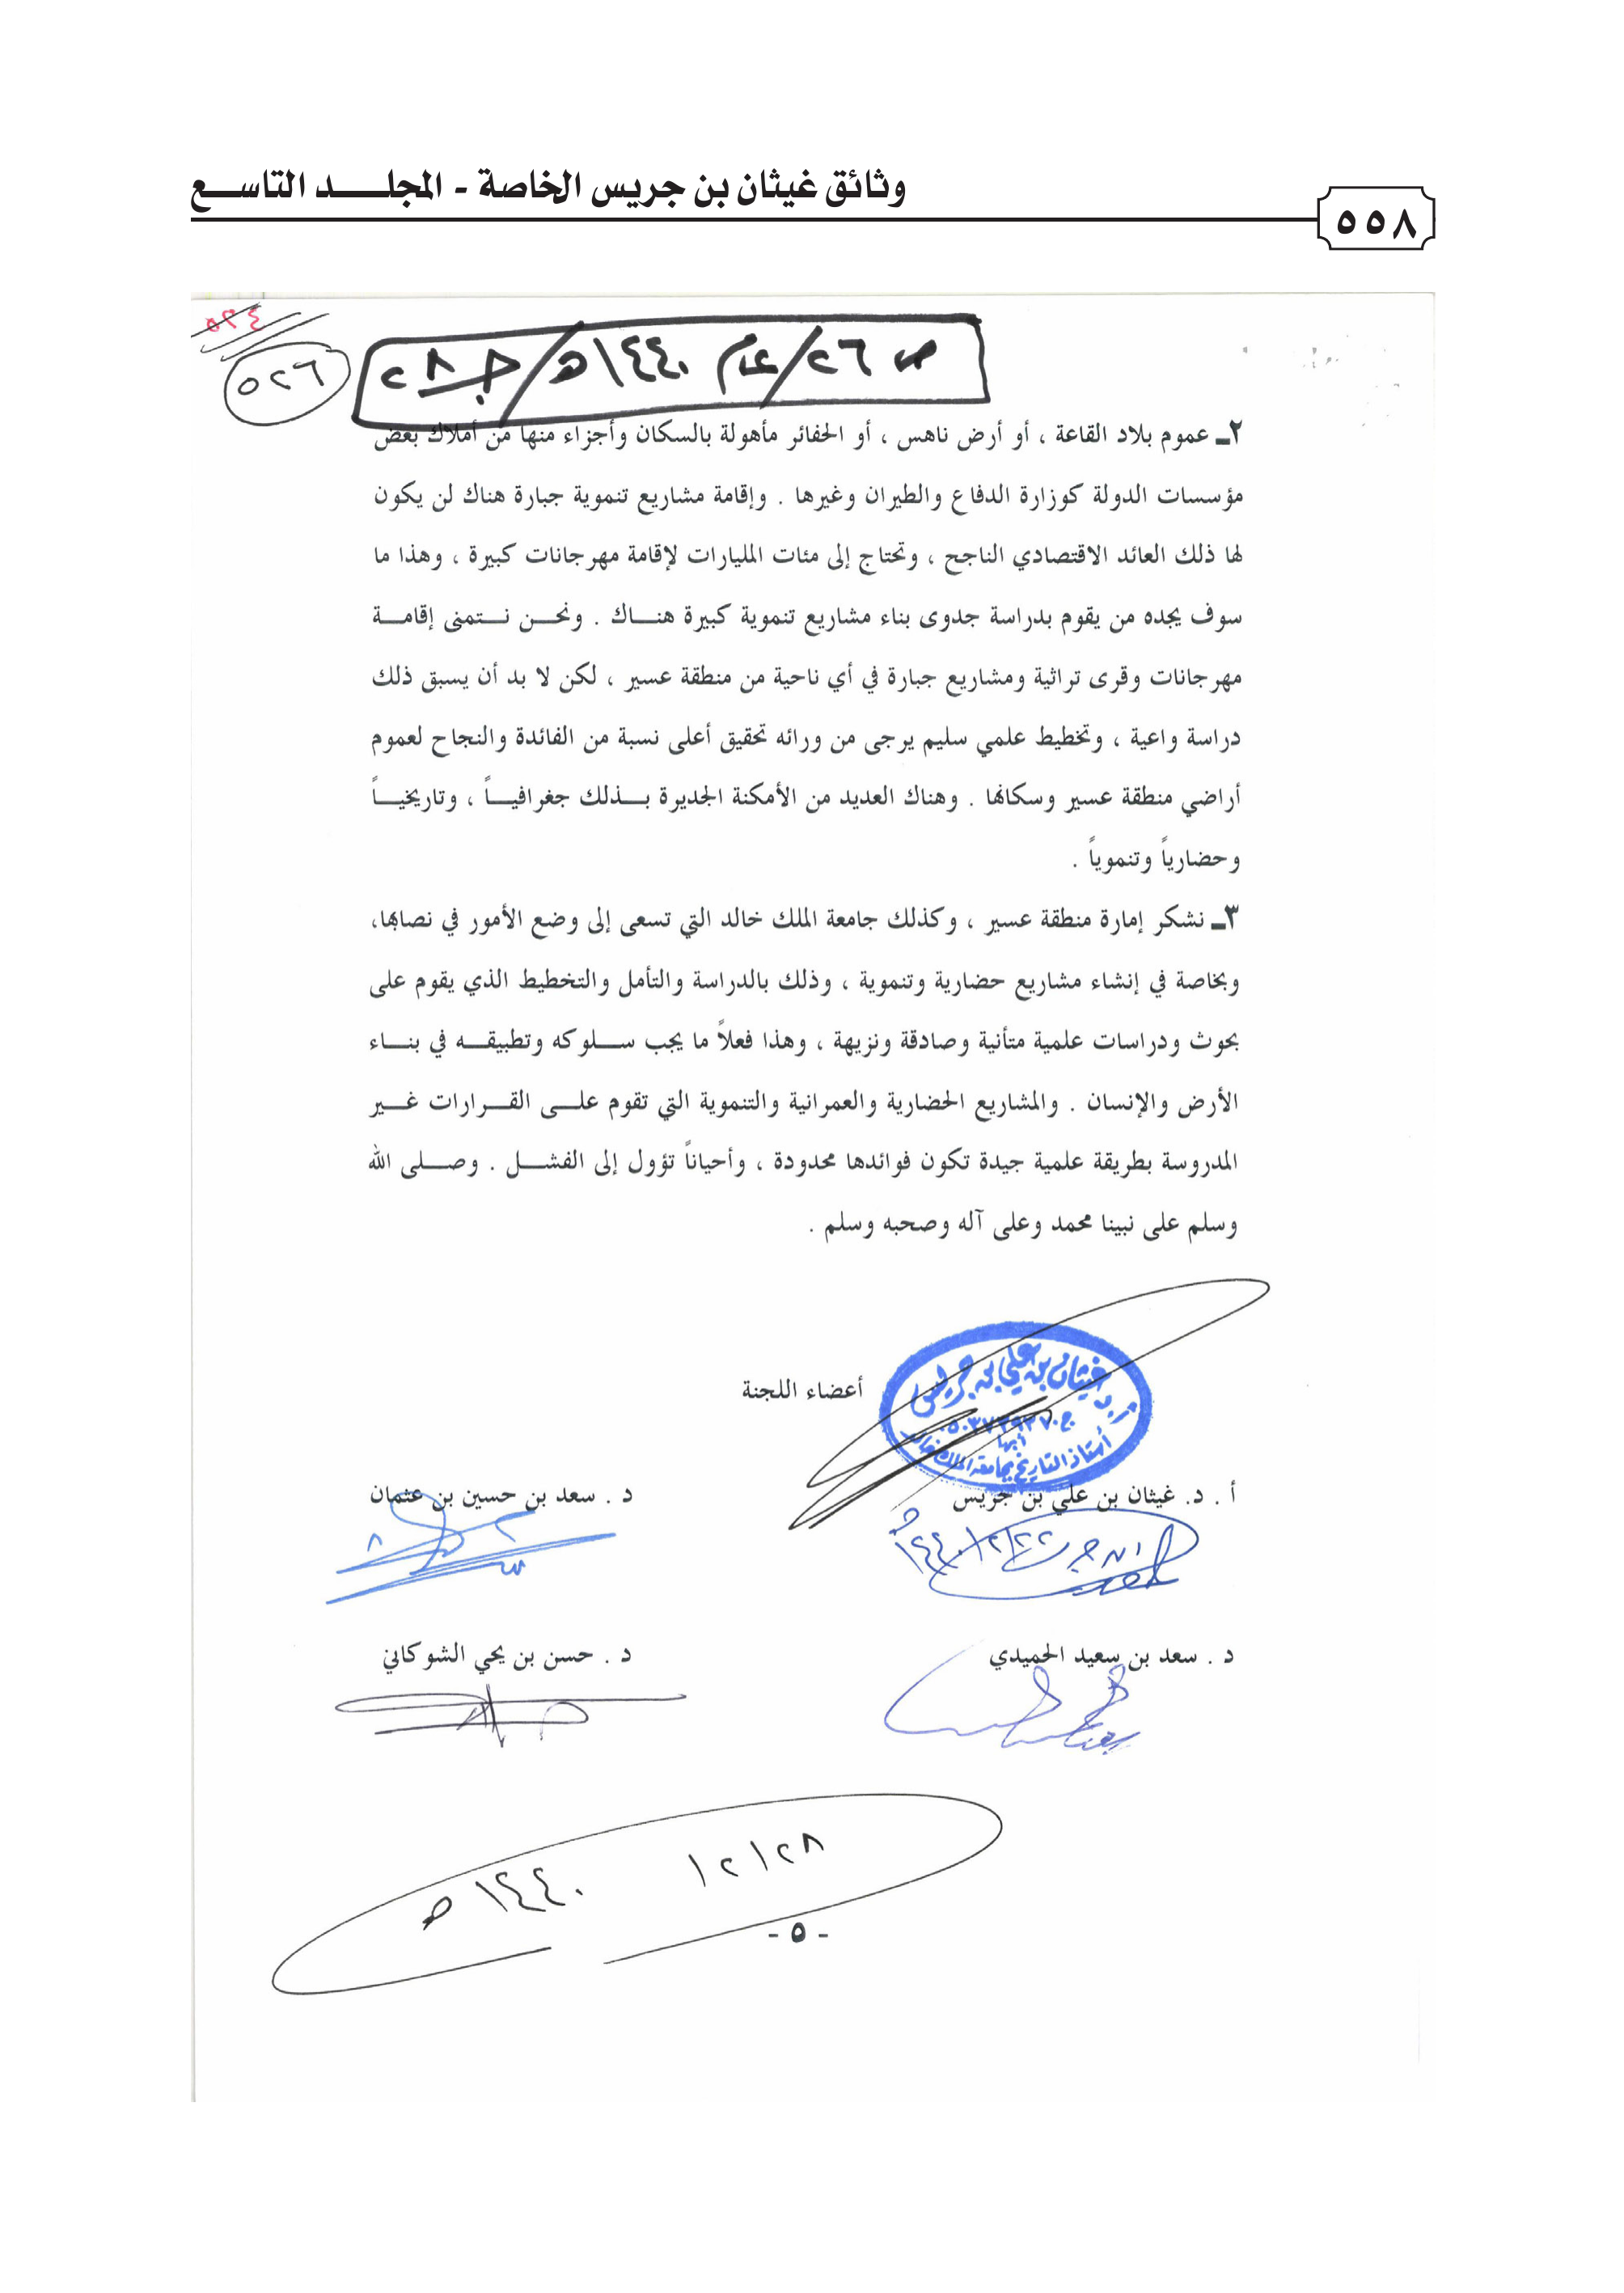 وثائق غيثان بن جريس الخاصة - المجلد التاسع
٥٥٨
٥٢٤
٥٢٦
ص ٢٦/عام ١٤٤٠هـ/جـ٢٨
٢ـ عموم بلاد القاعة ، أو أرض ناهس ، أو الحفائر مأهولة بالسكان وأجزاء منها من أملاك بعض
مؤسسات الدولة كوزارة الدفاع والطيران وغيرها . وإقامة مشاريع تنموية جبارة هناك لن يكون
لها ذلك العائد الاقتصادي الناجح ، وتحتاج إلى مئات المليارات لإقامة مهرجانات كبيرة ، وهذا ما
سوف يجده من يقوم بدراسة جدوى بناء مشاريع تنموية كبيرة هناك . ونحن نتمنى إقامة
مهرجانات وقرى تراثية ومشاريع جبارة في أي ناحية من منطقة عسير ، لكن لا بد أن يسبق ذلك
دراسة واعية ، وتخطيط علمي سليم يرجى من ورائه تحقيق أعلى نسبة من الفائدة والنجاح لعموم
أراضي منطقة عسير وسكانها . وهناك العديد من الأمكنة الجديرة بذلك جغرافياً ، وتاريخياً
وحضارياً وتنموياً .
٣ـ نشكر إمارة منطقة عسير ، وكذلك جامعة الملك خالد التي تسعى إلى وضع الأمور في نصابها،
وبخاصة في إنشاء مشاريع حضارية وتنموية ، وذلك بالدراسة والتأمل والتخطيط الذي يقوم على
بحوث ودراسات علمية متأنية وصادقة ونزيهة ، وهذا فعلاً ما يجب سلوكه وتطبيقه في بناء
الأرض والإنسان . والمشاريع الحضارية والعمرانية والتنموية التي تقوم على القرارات غير
المدروسة بطريقة علمية جيدة تكون فوائدها محدودة ، وأحياناً تؤول إلى الفشل . وصلى الله
وسلم على نبينا محمد وعلى آله وصحبه وسلم .
أعضاء اللجنة
أ.د. غيثان بن علي بن جريس
أبها
أستاذ التاريخ بجامعة الملك خالد
أ . د. غيثان بن علي بن جريس
د . سعد بن حسين بن عثمان
١٤٤٠/٢/٢٢هـ
د . سعد بن سعيد الحميدي
د . حسن بن يحي الشوكاني
٢٨/٢/١٤٤٠هـ
- ٥ -